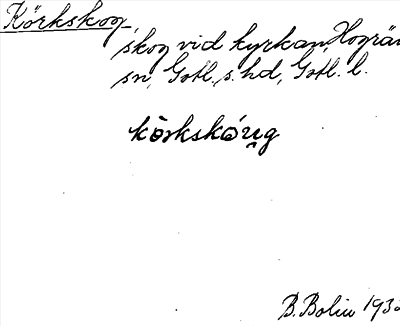 Körkskog
skog vid kyrkan, Hogrän
sn, Gotl. s. hd, Gotl. l.
kȯrkskóug
B. Bolin 193